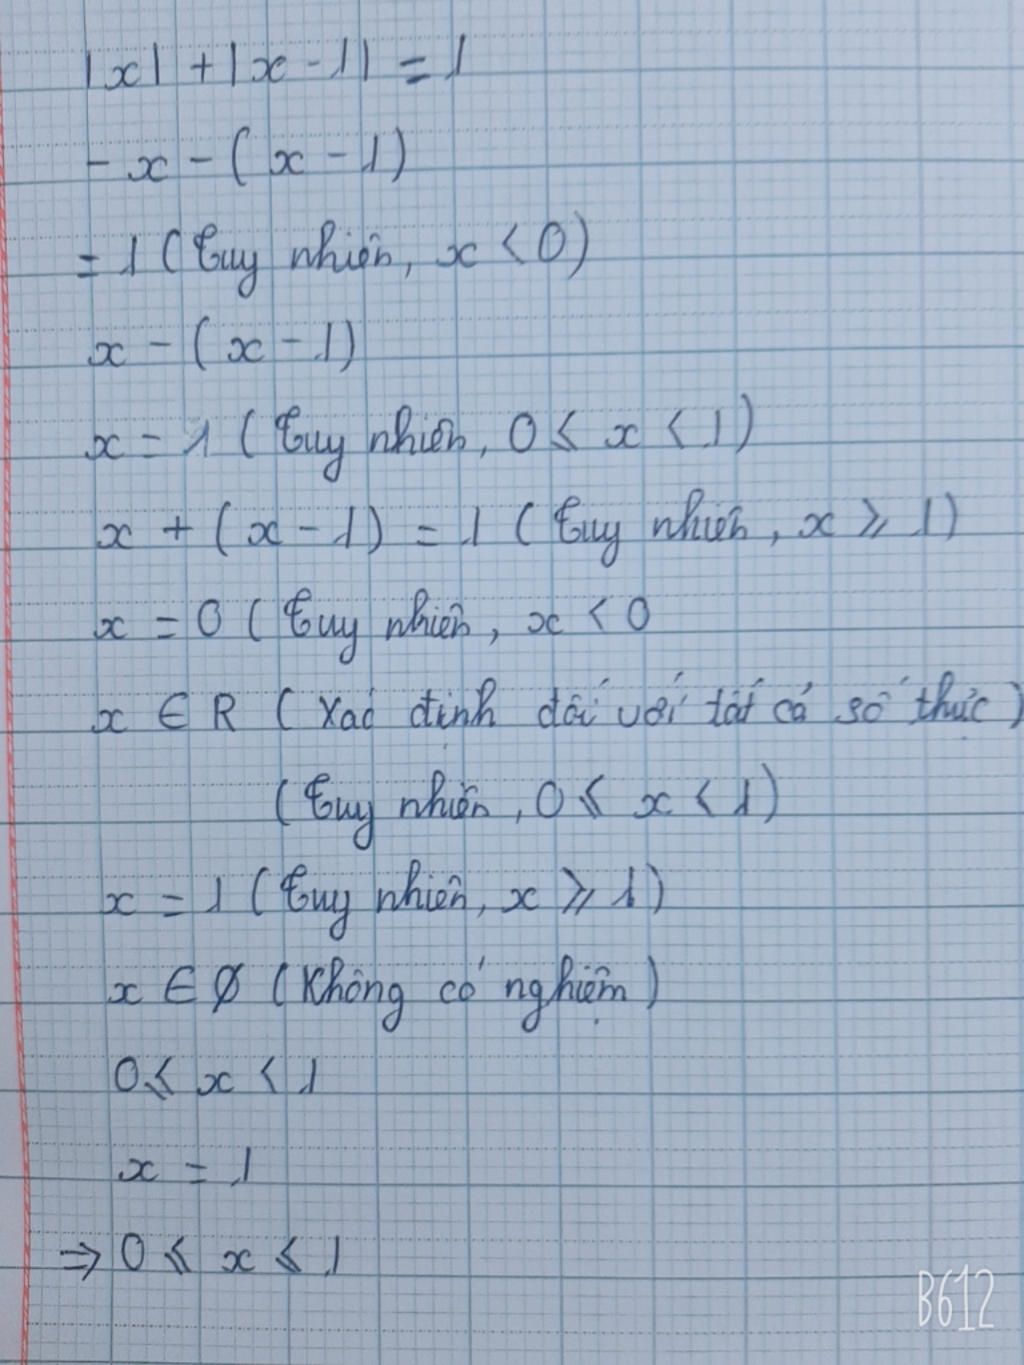 |x| + |x - 1| = 1
- x - (x - 1)
= 1 (tuy nhiên, x < 0)
x - (x - 1)
x = 1 (tuy nhiên, 0 ≤ x < 1)
x + (x - 1) = 1 (tuy nhiên, x ≥ 1)
x = 0 (tuy nhiên, x < 0
x ∈ R (Xác định đối với tất cả số thực)
(tuy nhiên, 0 ≤ x < 1)
x = 1 (tuy nhiên, x ≥ 1)
x ∈ Ø (Không có nghiệm)
0 ≤ x < 1
x = 1
⇒ 0 ≤ x ≤ 1
B612